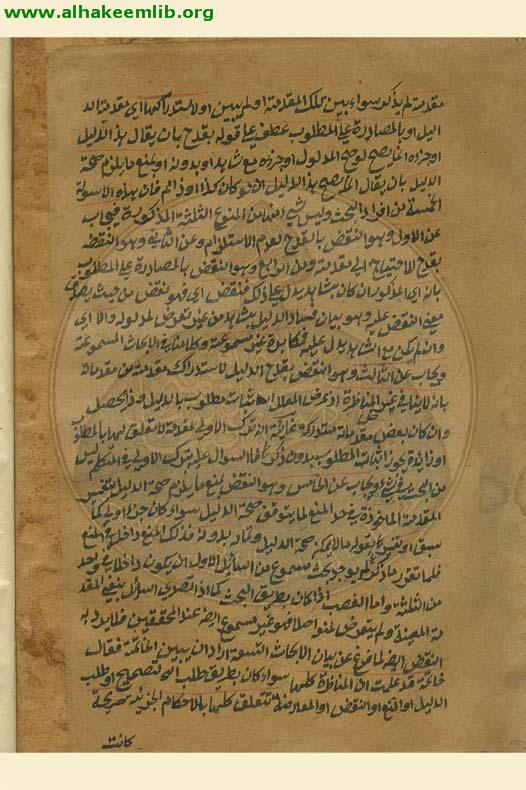 www.alhakeemlib.org
مقدمة لم يذكر سواء بين تلك المقدمة او لم يبين او لاستدراكها اى مقدمة الد
ليل او بالمصادرة على المطلوب عطف على قوله بقدح بان يقال هذا الدليل
او جزءه انما يصح لو صح المدلول او جزءه مع شاهد او بدونه او بمنع ما يلزم صحة
الدليل بان يقال انما يصح هذا الدليل ان لو كان كذا او ذا لم فان هذه الاسولة
الخمسة من افراد البحث وليس شئ منها من المنوع الثلثة المذكورة فيجاب
عن الاول وهو النقض بالقدح بعدم الاستلزام وعن الثانى وهو النقض
بقدح الاحتياج الى مقدمة وعن الرابع وهو النقض بالمصادرة على المطلوب
بانه اى المذكور ان كان بشاهد يدل على ذلك فنقض اى فهو نقض من حيث يصدق
معنى النقض عليه وهو بيان فساد الدليل بشاهد من غير تعرض لمدلوله والا اى
وان لم يكن مع الشاهد يدل عليه فمكابرة غير مسموعة وكلامنا فى الابحاث المسموعة
ويجاب عن الثالث وهو النقض بقدح الدليل لاستدراك مقدمة من مقدماته
بانه لا ينافى غرض المناظرة اذ غرض المعلل اثبات مطلوب بالدليل وقد يحصل
وان كان بعض مقدماته مستدركة غايته انه ترك الاولى لمقدمة لا تتعلق لها بالمطلوب
او زايدة يجوز اثبات المطلوب بدون ذكرها فالسوال عليه بترك الاولى فى المتكلم ليس
من البحث فى شئ ويجاب عن الخامس وهو النقض بمنع ما يلزم صحة الدليل بتفسير
المقدمة الماخوذة فى حد المنع لما يتوقف صحة الدليل سواء كان جزءا اولا كما
سبق او بتفسيرها بقوله ما لا يمكن صحة الدليل وتمامه بدونه فذلك المنع داخل فى المنع
فلما تقرر ما ذكر لم يوجد بحث مسموع من السائل الاول ان يكون داخلا فى واحد
من الثلثة واما الغصب اذا كان بطريق البحث كما اذا تصدى السائل بنفى المقد
مة المعينة ولم يتعرض لمنع اصلا فهو غير مسموع ايضا عند المحققين فلا يرد به
النقض ايضا لما فرغ عن بيان الابحاث التسعة اراد ان يبين الخاتمة فقال
خاتمة قد علمت ان المناظرة كلها سواء كان بطريق طلب التصحيح او طلب
الدليل او المنع او النقض او المعارضة تتعلق كلها بالاحكام الجزئية صريحة
كانت